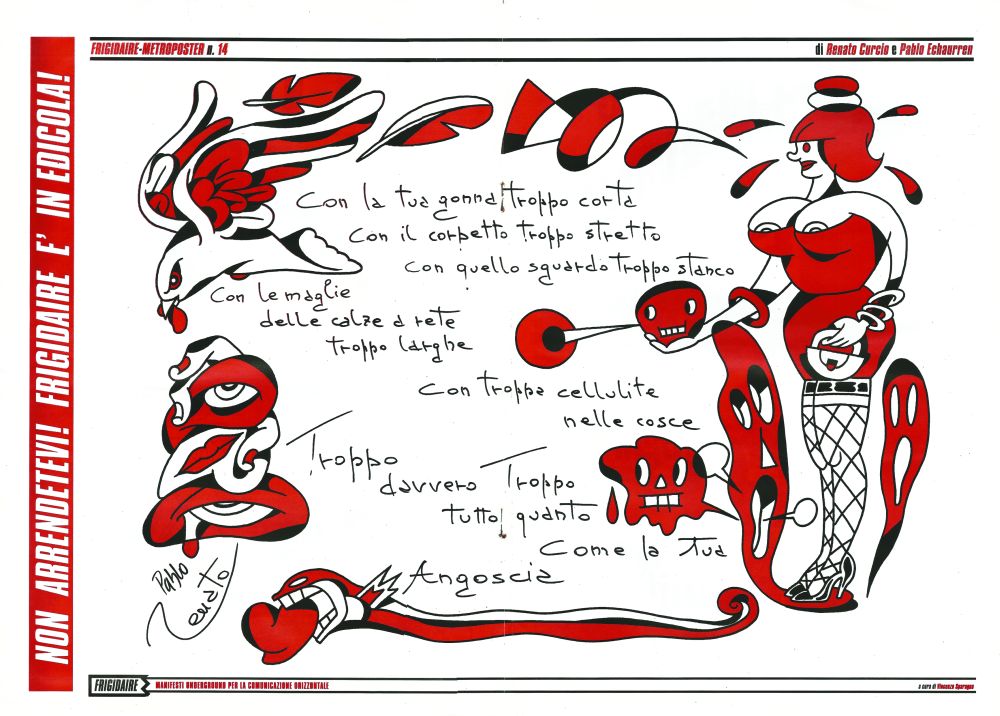 NON ARRENDETEVI! FRIGIDAIRE E' IN EDICOLA!
FRIGIDAIRE-METROPOSTER n. 14
di Renato Curcio e Pablo Echaurren
Con la tua gonna troppo corta
Con il corpetto troppo stretto
con quello sguardo troppo stanco
Con le maglie
delle calze a rete
troppo larghe
Con troppa cellulite
nelle cosce
Troppo
davvero Troppo
tutto quanto
Come la tua
Angoscia
Pablo
Renato
FRIGIDAIRE
MANIFESTI UNDERGROUND PER LA COMUNICAZIONE ORIZZONTALE
a cura di Vincenzo Sparagna